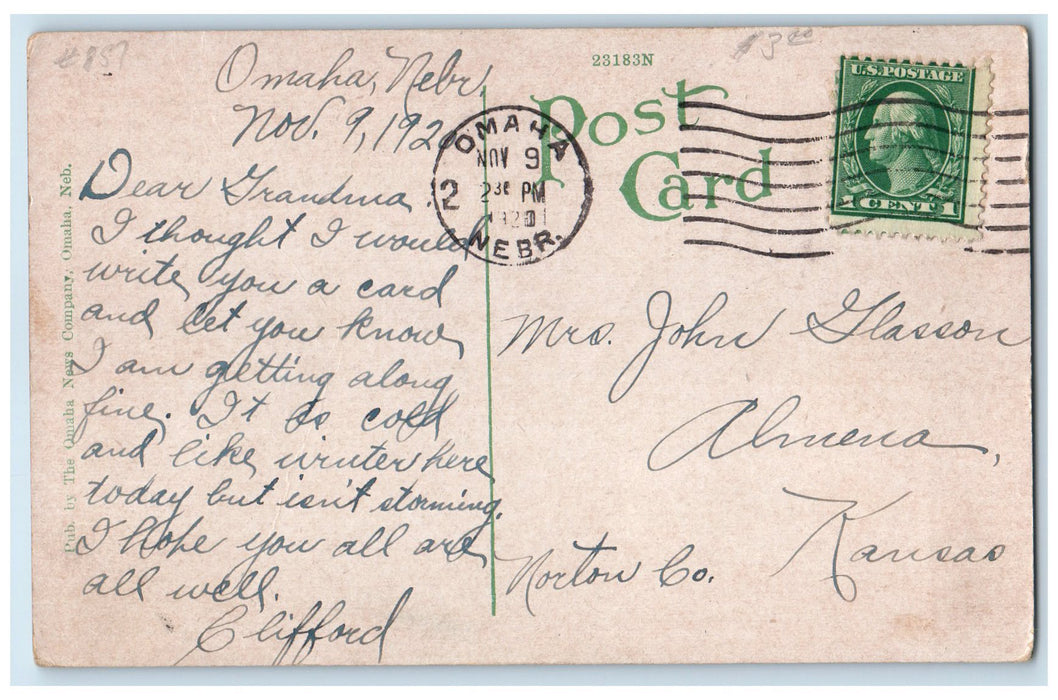 #857
$3.00
23183N
Post
Card
U.S. POSTAGE
1 CENT 1
OMAHA
NOV 9
2 30 PM
2
NEBR.
Pub. by The Omaha News Company, Omaha, Neb.
Omaha, Nebr.
Nov. 9, 192
Dear Grandma
I thought I would
write you a card
and let you know
I am getting along
fine. It is cold
and like winter here
today but isn't storming.
I hope you all are
all well.
Clifford
Mrs. John Glasson
Almena,
Kansas
Norton Co.